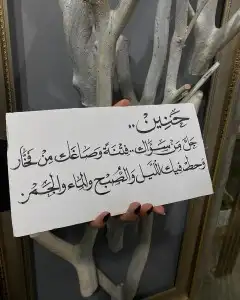 حَنين..
جَلَّ مَن سَوَّاك.. فِتْنَةً وَصَاغَك مِن فَخَّار
وَحط فيك اللَّيل وَالصُّبح وَالماء وَالجَمر